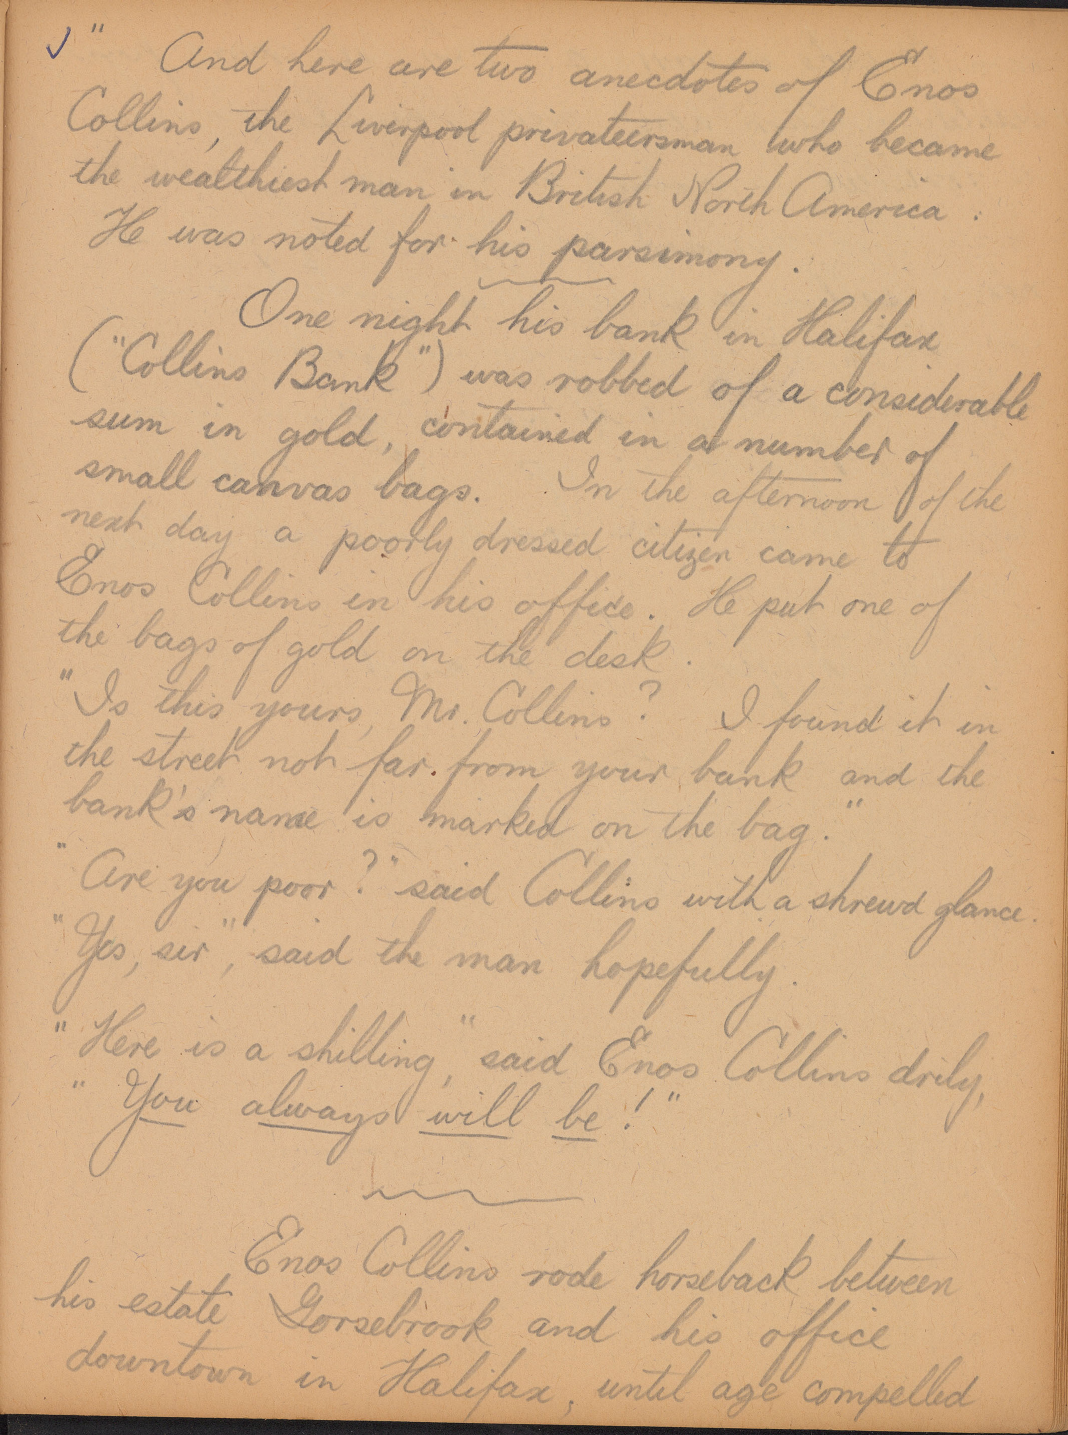 " And here are two anecdotes of Enos
Collins, the Liverpool privateersman who became
the wealthiest man in British North America.
He was noted for his parsimony.
One night his bank in Halifax
("Collins Bank") was robbed of a considerable
sum in gold, contained in a number of
small canvas bags. In the afternoon of the
next day a poorly dressed citizen came to
Enos Collins in his office. He put one of
the bags of gold on the desk.
"Is this yours, Mr. Collins? I found it in
the street not far from your bank and the
bank's name is marked on the bag."
"Are you poor?" said Collins with a shrewd glance.
"Yes, sir", said the man hopefully.
"Here is a shilling," said Enos Collins drily,
"You always will be!"
Enos Collins rode horseback between
his estate Gorsebrook and his office
downtown in Halifax, until age compelled